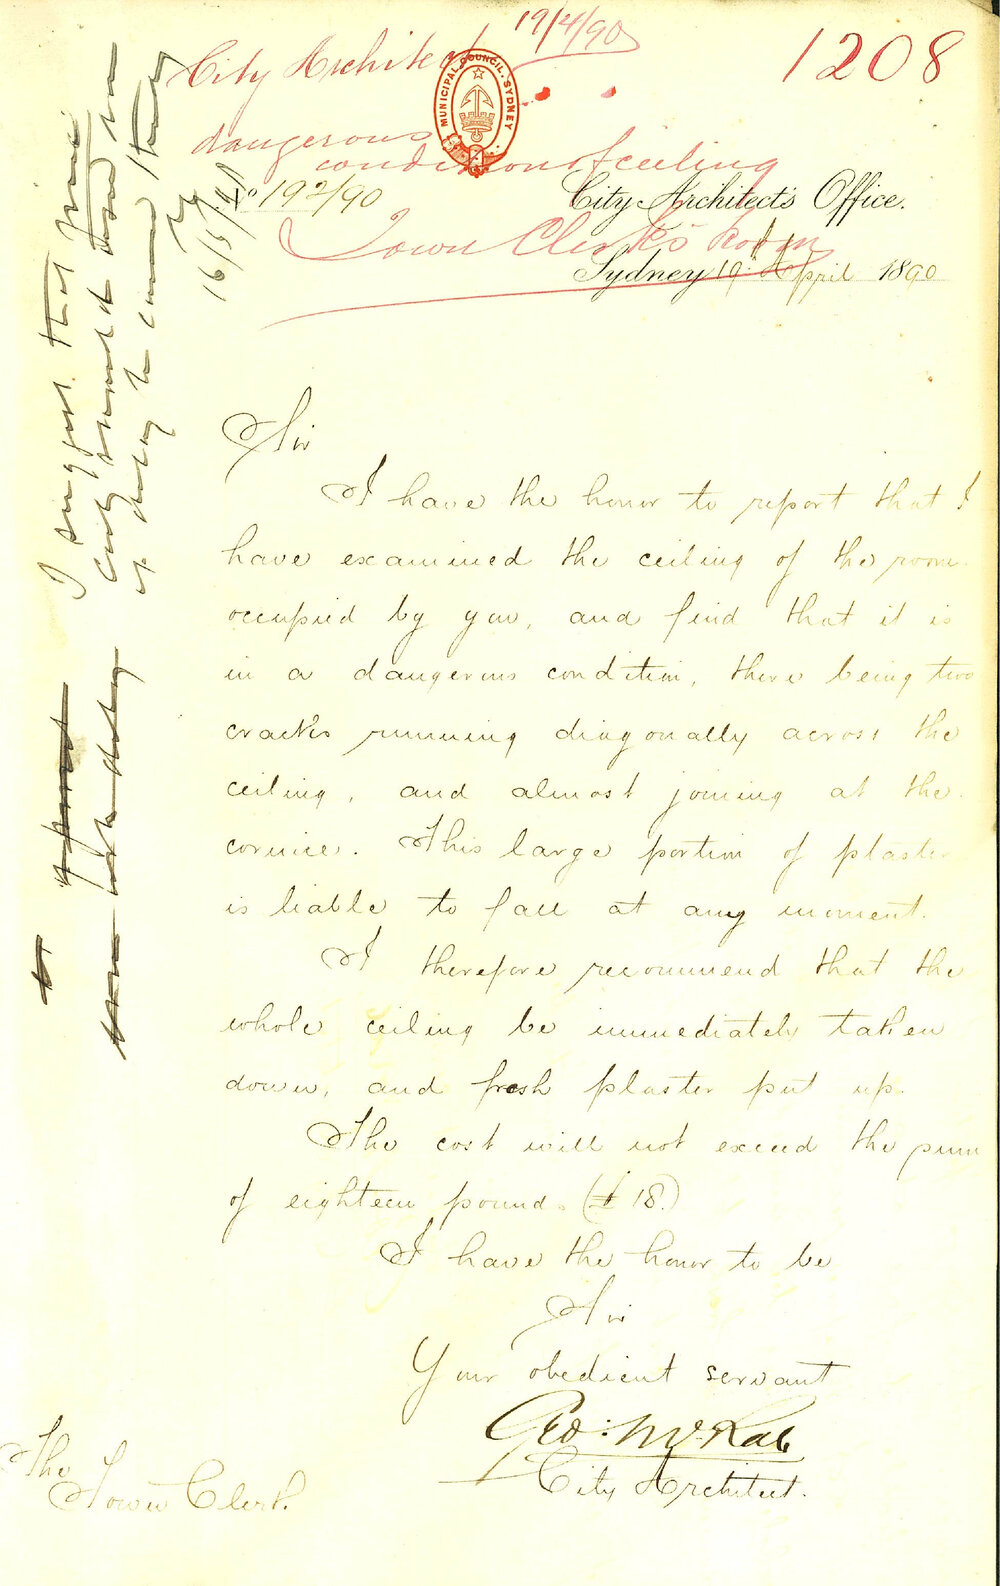 19/4/90
1208
City Architect
MUNICIPAL COUNCIL. SYDNEY
dangerous
condition of ceiling
No 192/90
City Architect's Office.
Town Clerk's Room
Sydney 19th April 1890
Sir
I have the honor to report that I
have examined the ceiling of the room
occupied by you, and find that it is
in a dangerous condition, there being two
cracks running diagonally across the
ceiling, and almost joining at the
cornice. This large portion of plaster
is liable to fall at any moment.
I therefore recommend that the
whole ceiling be immediately taken
down, and fresh plaster put up.
The cost will not exceed the sum
of eighteen pounds (£18.)
I have the honor to be
Sir
Your obedient servant
Geo: McRae
City Architect.
The
Town Clerk.
I suggest that
during the
16/5/90